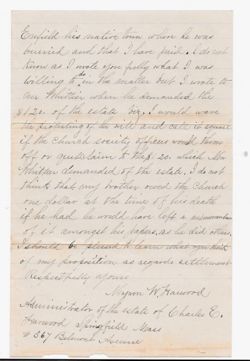 Enfield his native town when he was
buried and that I have paid. I do not
know as I wrote you fully what I was
willing to do in the matter but I wrote to
Mr Whittier when he demanded the
$120. of the estate I would waive
the protesting of the bill and call it square
if the church society officers would throw
off or quitclaim to that 20. which Mr
Whittier demanded of the estate. I do not
think that my brother owed the church
one dollar at the time of his death
if he had he would have left a memorandum
of it amongst his papers, as he did others.
I should be pleased to learn what you think
of my proposition as regards settlement
Respectfully yours
Myron W. Harwood
Administrator of the estate of Charles E.
Harwood Springfield Mass
# 367 Belmont Avenue